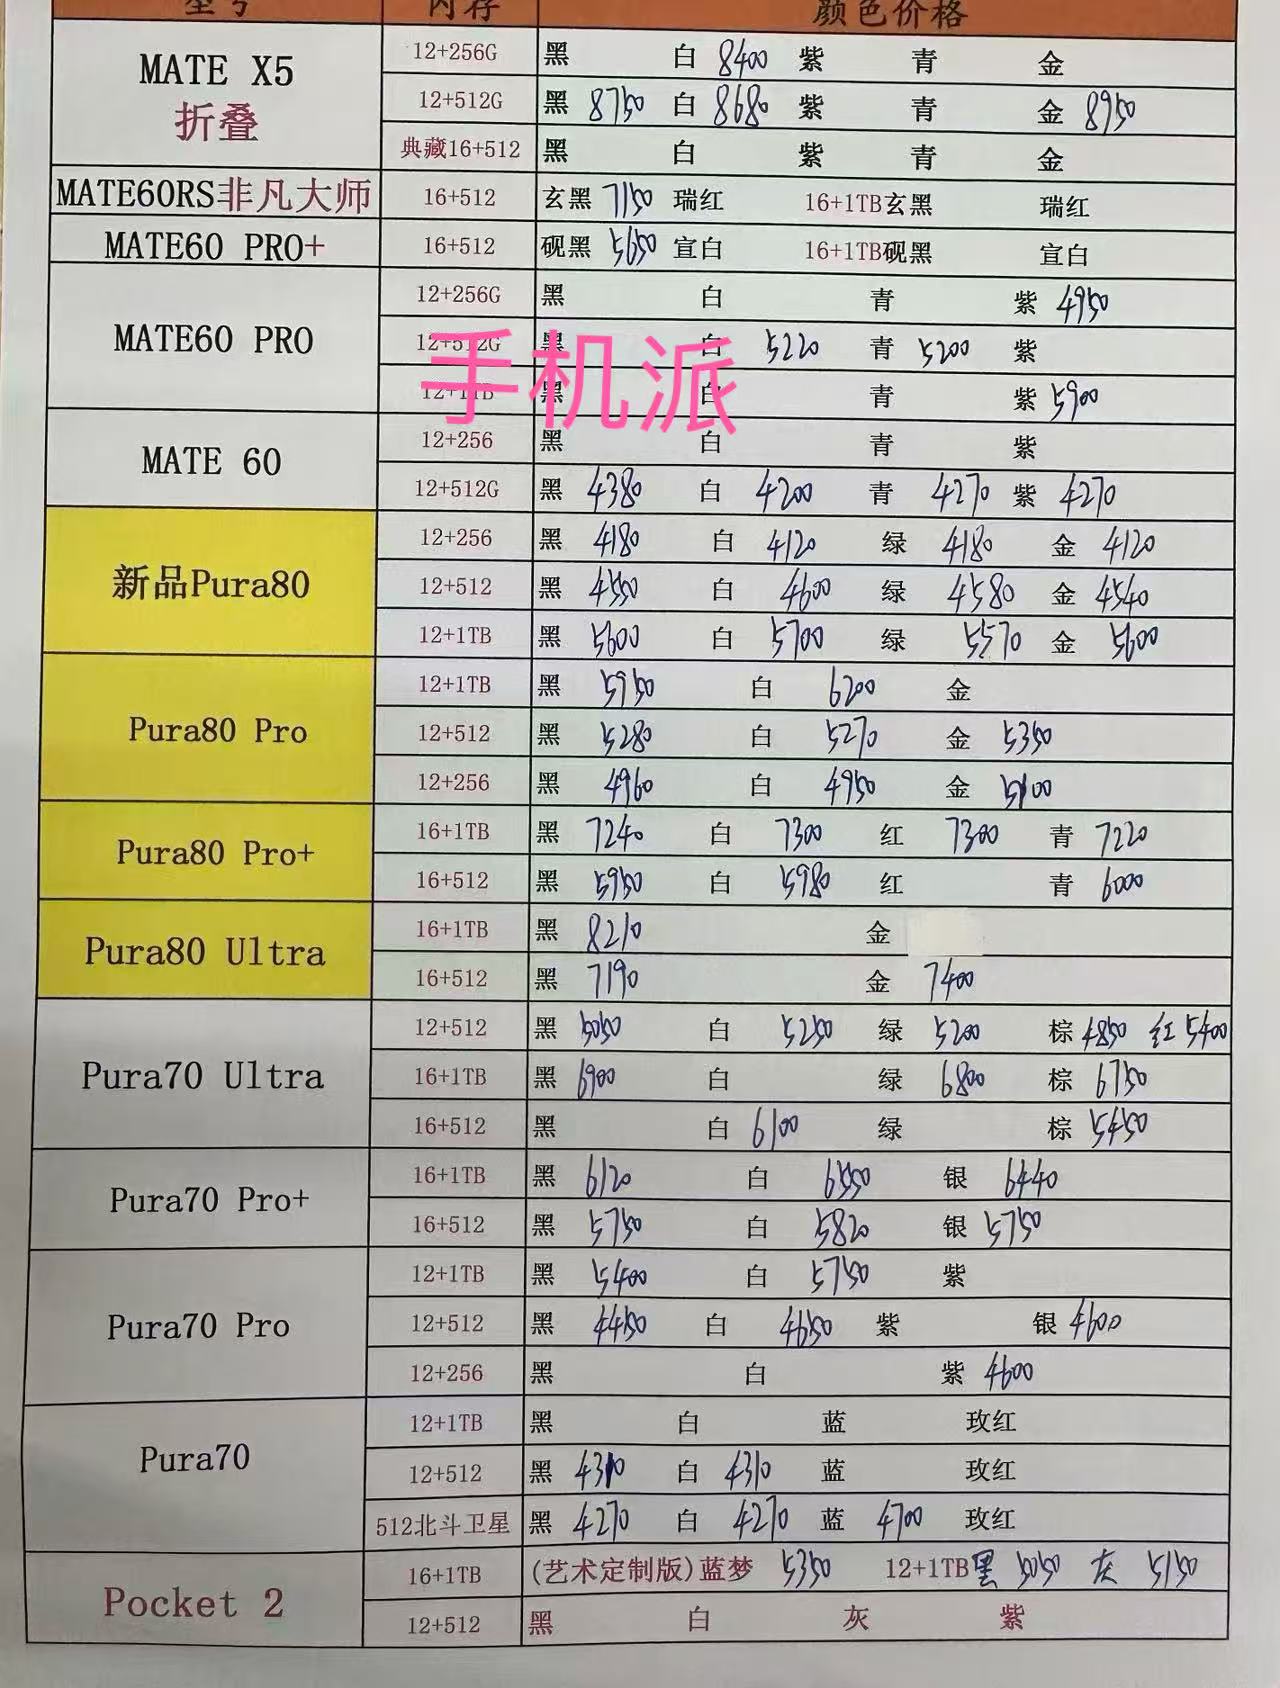 型号 内存 颜色价格
MATE X5 折叠
12+256G 黑 白 8400 紫 青 金
12+512G 黑 8750 白 8680 紫 青 金 8950
典藏16+512 黑 白 紫 青 金
MATE60RS非凡大师 16+512 玄黑 7150 瑞红 16+1TB玄黑 瑞红
MATE60 PRO+ 16+512 砚黑 5650 宣白 16+1TB砚黑 宣白
MATE60 PRO
12+256G 黑 白 青 紫 4950
12+512G 黑 白 5220 青 5200 紫
手机派
12+1TB 黑 白 青 紫 5900
MATE 60
12+256 黑 白 青 紫
12+512G 黑 4380 白 4200 青 4270 紫 4270
新品Pura80
12+256 黑 4180 白 4120 绿 4180 金 4120
12+512 黑 4550 白 4600 绿 4580 金 4540
12+1TB 黑 5600 白 5700 绿 5570 金 5600
Pura80 Pro
12+1TB 黑 5950 白 6200 金
12+512 黑 5280 白 5270 金 5350
12+256 黑 4960 白 4950 金 5100
Pura80 Pro+
16+1TB 黑 7240 白 7300 红 7300 青 7220
16+512 黑 5950 白 5980 红 青 6000
Pura80 Ultra
16+1TB 黑 8210 金
16+512 黑 7190 金 7400
Pura70 Ultra
12+512 黑 5050 白 5250 绿 5200 棕 4850 红 5400
16+1TB 黑 6900 白 绿 6800 棕 6750
16+512 黑 白 6100 绿 棕 5450
Pura70 Pro+
16+1TB 黑 6120 白 6550 银 6440
16+512 黑 5750 白 5820 银 5750
Pura70 Pro
12+1TB 黑 5400 白 5750 紫
12+512 黑 4450 白 4650 紫 银 4600
12+256 黑 白 紫 4600
Pura70
12+1TB 黑 白 蓝 玫红
12+512 黑 4310 白 4310 蓝 玫红
512北斗卫星 黑 4270 白 4270 蓝 4700 玫红
Pocket 2
16+1TB (艺术定制版)蓝梦 5350 12+1TB黑 5050 灰 5150
12+512 黑 白 灰 紫